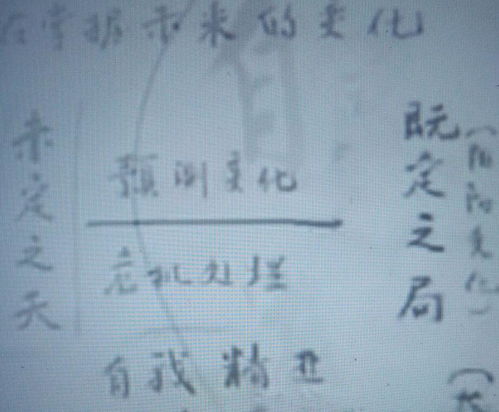 在掌握未来的变化
未定之天
预测变化
危机处理
自我精进
既定之局
(阴阳变化)